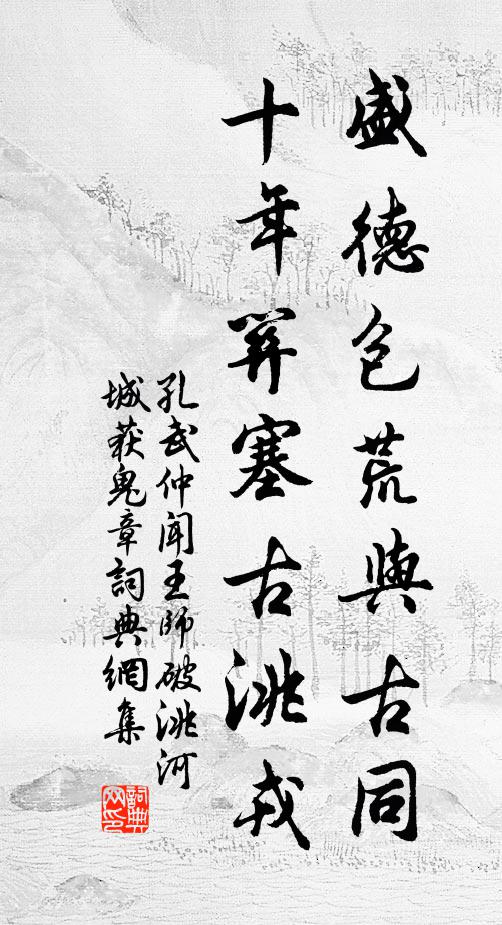 盛德包荒與古同
十年塞古洮戎
孔武仲聞王師破洮河
城获鬼章詞典網集
詞典
网印